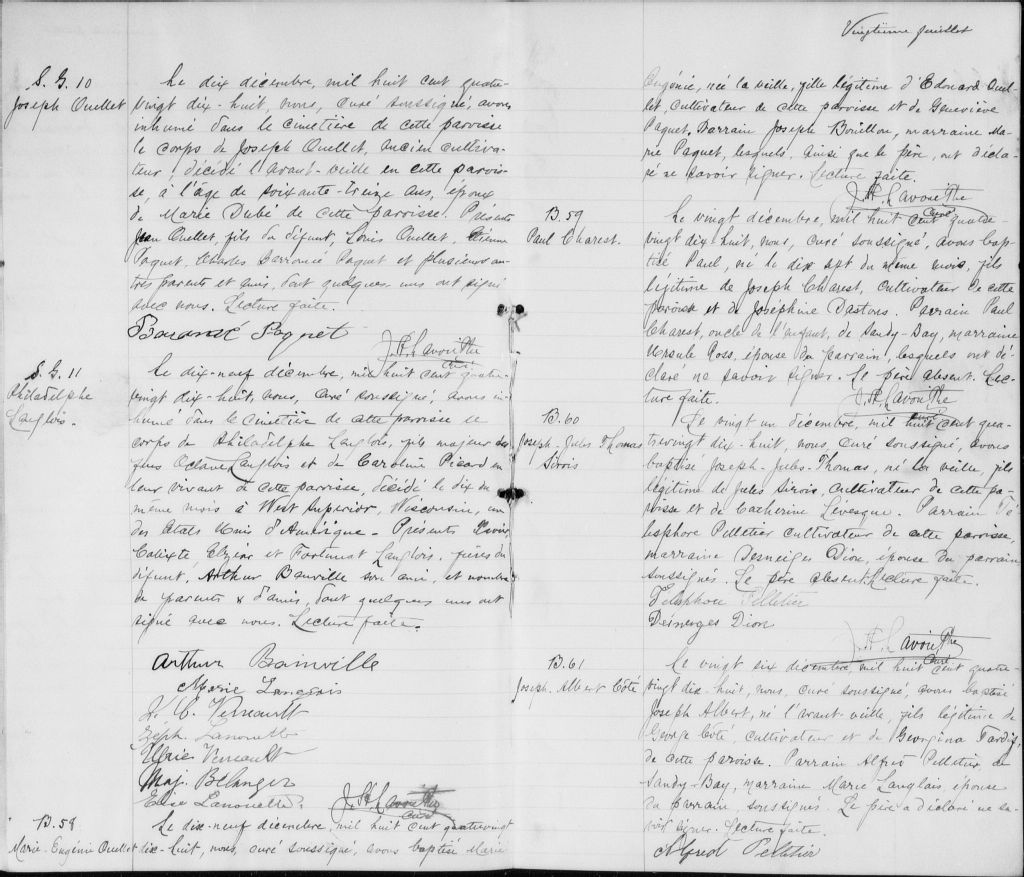 S. G. 10
Joseph Ouellet
Le dix décembre, mil huit cent quatre-
vingt dix-huit, nous, curé soussigné, avons
inhumé dans le cimetière de cette paroisse
le corps de Joseph Ouellet, ancien cultiva-
teur, décédé l'avant-veille en cette parois-
se, à l'âge de soixante-treize ans, époux
de Marie Dubé de cette paroisse. Présents
Jean Ouellet, fils du défunt, Louis Ouellet, Etienne
Paquet, Charles Paquet et plusieurs au-
tres parents et amis, dont quelques uns ont signé
avec nous. Lecture faite.
Paquet
J. A. Lavoie Ptre
curé
S. G. 11
Philadelphe
Langlois.
Le dix-neuf décembre, mil huit cent quatre-
vingt dix-huit, nous, curé soussigné, avons in-
humé dans le cimetière de cette paroisse le
corps de Philadelphe Langlois, fils majeur de
feus Octave Langlois et de Caroline Picard en
leur vivant de cette paroisse, décédé le dix du
même mois à West Superior, Wisconsin, un
des Etats Unis d'Amérique. Présents Louis,
Calixte Elzear et Fortunat Langlois, frères du
défunt, Arthur Banville son ami, et nombre
de parents & d'amis, dont quelques uns ont
signé avec nous. Lecture faite.
Arthur Bainville
Marie Langlois
J. C. Verreault
Zeph. Lanouette
Marie Verreault
Maj. Bélanger
Elise Lanouette.
J. A. Lavoie Ptre
curé
B. 58
Marie-Eugénie Ouellet
Le dix-neuf décembre, mil huit cent quatrevingt
dix-huit, nous, curé soussigné, avons baptisé Marie
Vingtième feuillet
Eugénie, née la veille, fille légitime d'Edouard Ouel-
let cultivateur de cette paroisse et de Geneviève
Paquet, Parrain Joseph Bouillon, marraine Ma-
rie Paquet, lesquels, ainsi que le père, ont décla-
ré ne savoir signer. Lecture faite.
J. A. Lavoie Ptre
curé
B. 59
Paul Charest.
Le vingt décembre, mil huit cent quatre-
vingt dix-huit, nous, curé soussigné, avons bap-
tisé Paul, né le dix sept du même mois, fils
légitime de Joseph Charest, Cultivateur de cette
paroisse et de Joséphine Dastous. Parrain Paul
Charest, oncle de l'enfant, de Sandy-Bay, marraine
Ursule Ross, épouse du parrain, lesquels ont dé-
claré ne savoir signer. Le père absent. Lec-
ture faite.
J. A. Lavoie Ptre
curé
B. 60
Joseph-Jules Thomas
Sirois
Le vingt un décembre, mil huit cent qua-
trevingt dix-huit, nous, curé soussigné, avons
baptisé Joseph-Jules-Thomas, né la veille, fils
légitime de Jules Sirois, Cultivateur de cette pa-
roisse et de Catherine Levesque. Parrain Té-
lesphore Pelletier cultivateur de cette paroisse,
marraine Desneiges Dion, épouse du parrain
soussignés. Le père absent. Lecture faite.
Télesphore Pelletier
Desneiges Dion
J. A. Lavoie Ptre
curé
B. 61
Joseph Albert Côté
Le vingt six décembre, mil huit cent quatre-
vingt dix-huit, nous, curé soussigné, avons baptisé
Joseph Albert, né l'avant-veille, fils légitime de
George Côté, cultivateur et de Georgina Tardif,
de cette paroisse. Parrain Alfred Pelletier de
Sandy-Bay, marraine Marie Langlais, épouse
du parrain, soussignés. Le père a déclaré ne sa-
voir signer. Lecture faite.
Alfred Pelletier